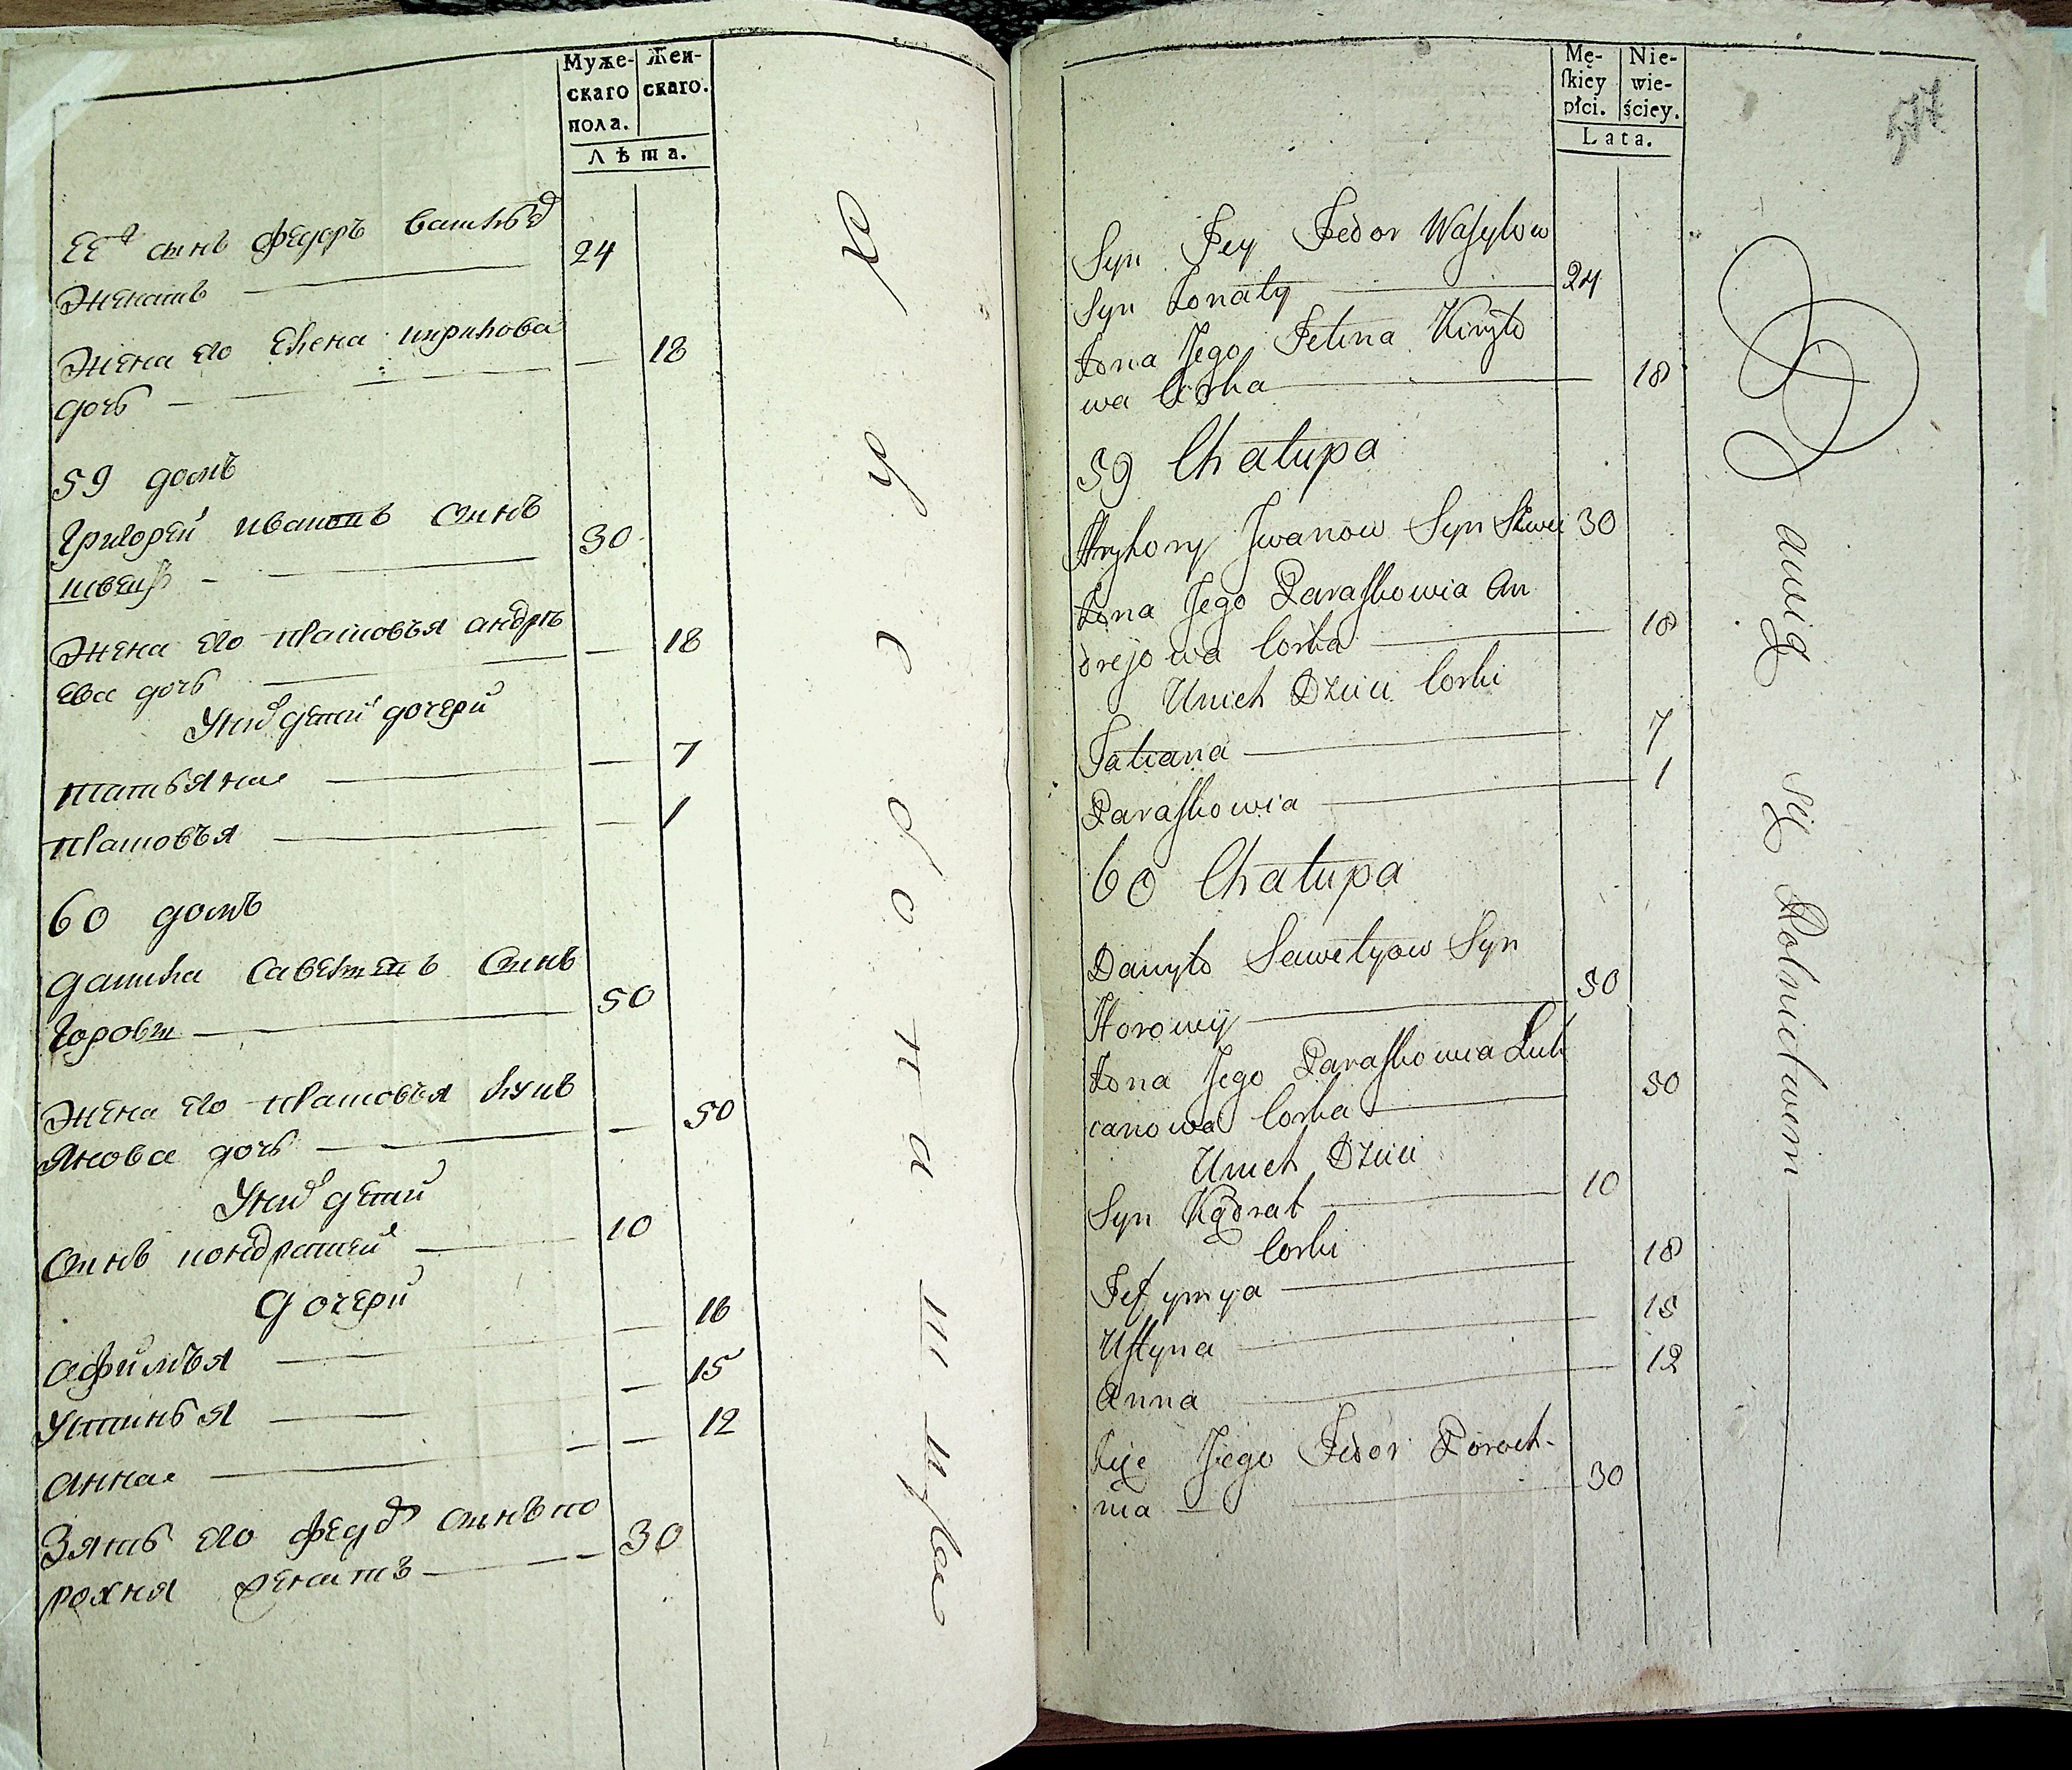 Муже-
скаго
пола.
Жен-
скаго.
Лѣта.
ее сынъ Федоръ Василье
женатъ — 24
жена его Елена кирилова
дочь — — 18
59 домъ
Григорей Ивановъ сынъ
швецъ — 30
жена его Прасковья андре
ева дочь — — 18
У них детей дочери
татьяна — — 7
Прасковья — — 1
60 домъ
данила савельевъ сынъ
Горовы — 50
жена его Прасковья лукь
янова дочь — — 50
У них детей
сынъ кондратей — 10
дочери
афимья — — 16
Устинья — — 15
анна — — 12
Зять его Федоръ сынъ по
рохня женатъ — 30
Mę-
skiey
płci.
Nie-
wie-
ściey.
Lata.
577
Syn Jey Fedor Wasylow
Syn żonaty — 24
żona Jego Petina Kiryło
wa Corka — 18
59 Chałupa
Hryhory Jwanow Syn Szwei 30
żona Jego Paraskowia An
drejowa Corka — 18
Unich Dzieci Corki
Tatiana — 7
Paraskowia — 1
60 Chałupa
Danyło Sawełyow Syn
Horowy — 50
żona Jego Paraskowia Luk
ianowa Corka — 50
Unich Dzieci
Syn Kądrat — 10
Corki
Jefymya — 18
Ustyna — 15
Anna — 12
Jego Fedor Poroch-
nia — 30
Bawią się Rolnictwem —